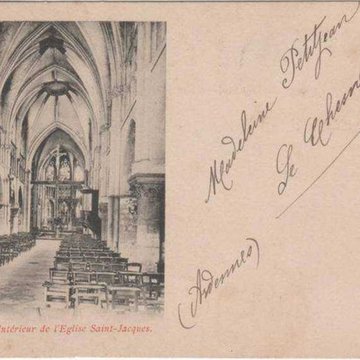 Intérieur de l'Eglise Saint-Jacques.
Madeleine Petitjean
Le Chesne
(Ardennes)